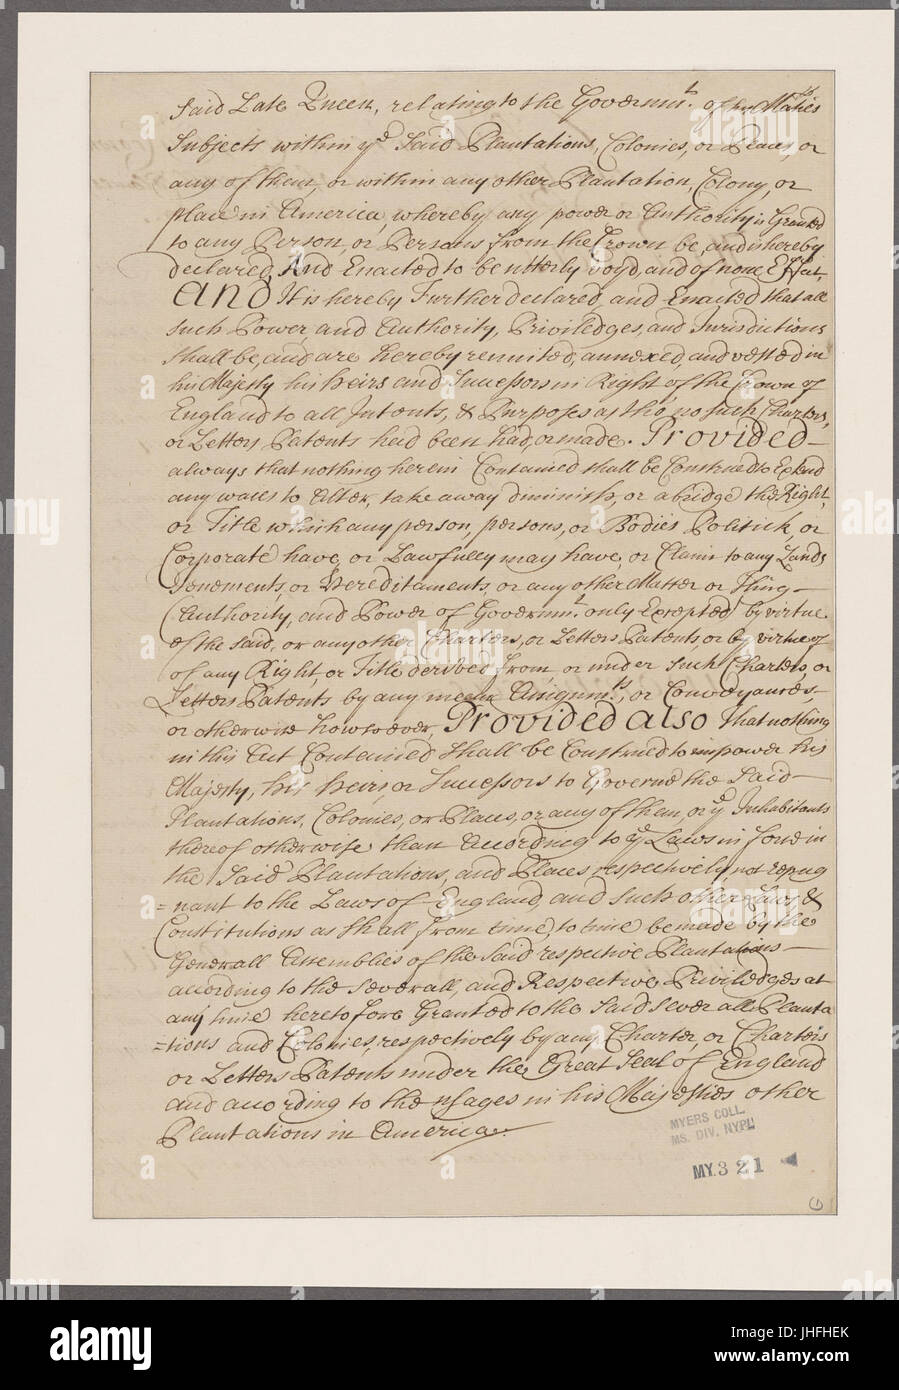 Said Late Queen, relating to the Governmt. of his Maties
Subjects within ye Said Plantations, Colonies, or Places or
any of them, or within any other Plantation, Colony, or
place in America, whereby any power or Authority is Granted
to any Person, or Persons from the Crown be, and is hereby
declared, And Enacted to be utterly Voyd, and of none Effect,
And It is hereby Further declared, and Enacted that all
such Power, and Authority, Priviledges, and Jurisdictions
shall be, and are hereby reunited, annexed, and vested in
his Majesty his heirs and Successors in Right of the Crown of
England to all Intents, & Purposes as tho' no such Charters,
or Letters Patents had been had, or made. Provided
always that nothing herein Contained shall be Construed to Extend
any waies to Alter, take away diminish, or abridge the Right,
or Title which any person, persons, or Bodies Politick, or
Corporate have, or Lawfully may have, or Claim to any Lands
Tenements, or Hereditaments, or any other Matter or Thing
(Authority, and Power of Governmt. only Excepted) by virtue
of the said, or any other Charters, or Letters Patents, or by virtue of
of any Right, or Title derived from or under such Charters, or
Letters Patents by any means Assignmts, or Conveyances,
or otherwise howsoever, Provided also that nothing
in this Act Contained shall be Construed to impower his
Majesty, his heirs, or Successors to Governe the Said
Plantations, Colonies, or Places, or any of them, or ye Inhabitants
thereof otherwise than According to ye Laws in force in
the Said Plantations, and Places respectively, not repug
=nant to the Laws of England, and such other Laws, &
Constitutions as shall from time, to time be made by the
Generall Assemblies of the said respective Plantations
according to the severall, and Respective Priviledges at
any time heretofore Granted to the Said Severall Planta
=tions and Colonies, respectively by any Charter, or Charters
or Letters Patents under the Great Seal of England
and according to the usages in his Majesties other
Plantations in America.
MYERS COLL.
MS. DIV. NYPL
MY. 3 21
alamy stock photo
JHFHEK
www.alamy.com